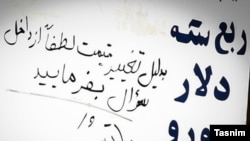 ربع سکه
دلار
یورو
بدلیل تغییر قیمت لطفاً از داخل
سؤال بفرمایید
Tasnim